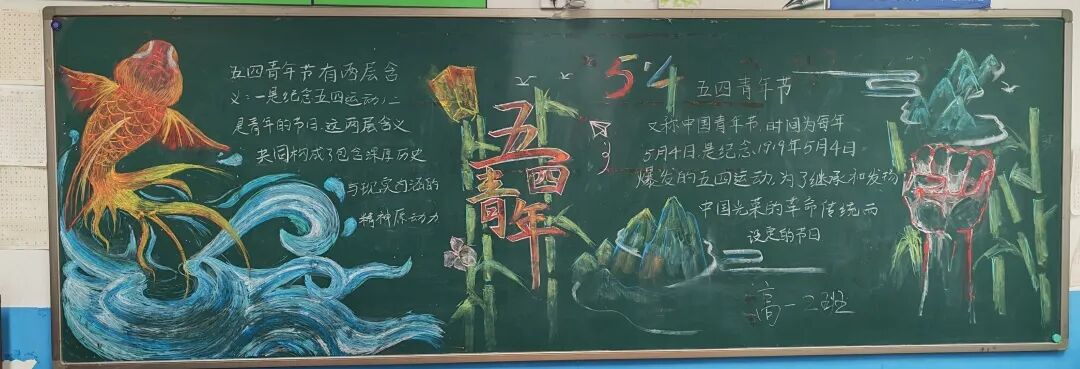 五四青年节有两层含
义：一是纪念五四运动，二
是青年的节日。这两层含义
共同构成了包含深厚历史
与现实内涵的
精神原动力
五四
青年
54
五四青年节
又称中国青年节，时间为每年
5月4日，是纪念1919年5月4日
爆发的五四运动，为了继承和发扬
中国光荣的革命传统而
设定的节日
高一二班